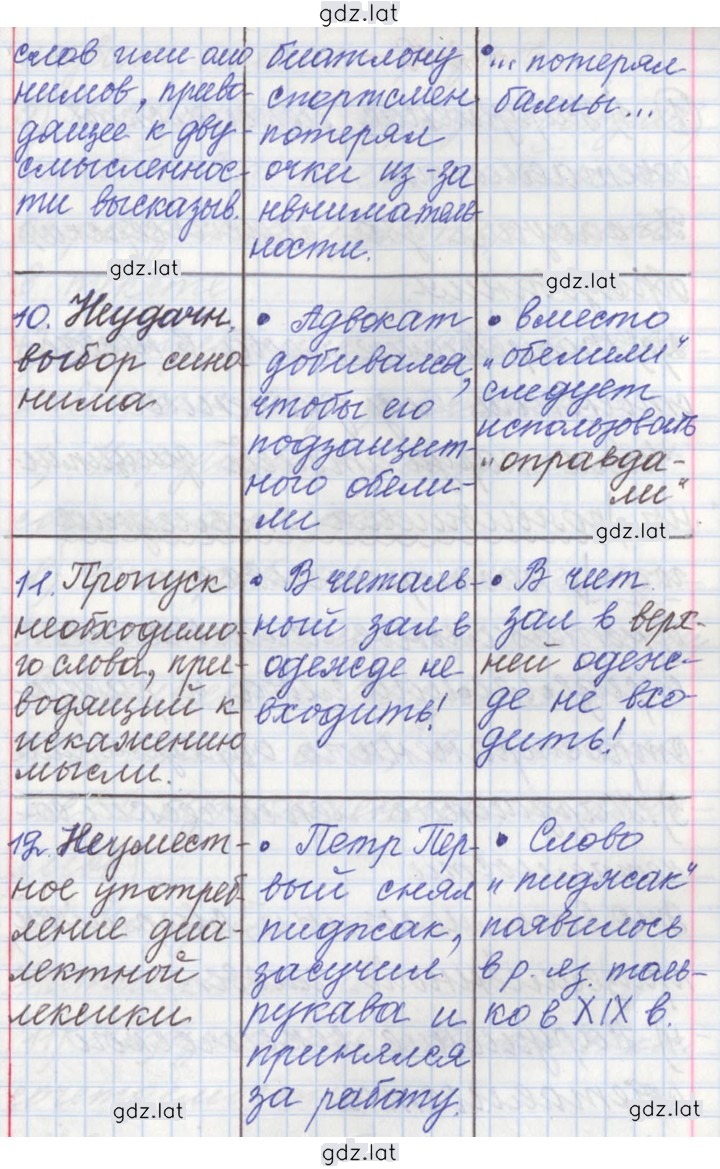 gdz.lat
слов или омо
нимов, приво-
дящее к дву-
смысленнос-
ти высказыв.
биатлону
спортсмен
потерял
очки из-за
невниматель-
ности.
•... потерял
баллы...
gdz.lat
gdz.lat
10. Неудачн.
выбор сино
нима
• Адвокат
добивался,
чтобы его
подзащит-
ного обели-
ли
• вместо
„обелили"
следует
использовать
„оправда-
ли"
gdz.lat
11. Пропуск
необходимо-
го слова, при-
водящий к
искажению
мысли.
• В читаль-
ный зал в
одежде не
входить!
• В чит.
зал в верх-
ней одеж-
де не вхо-
дить!
12. Неумест-
ное употреб-
ление диа-
лектной
лексики
• Петр Пер-
вый снял
пиджак,
засучил
рукава и
принялся
за работу.
• Слово
„пиджак"
появилось
в р. яз. толь-
ко в XIX в.
gdz.lat
gdz.lat
gdz.lat